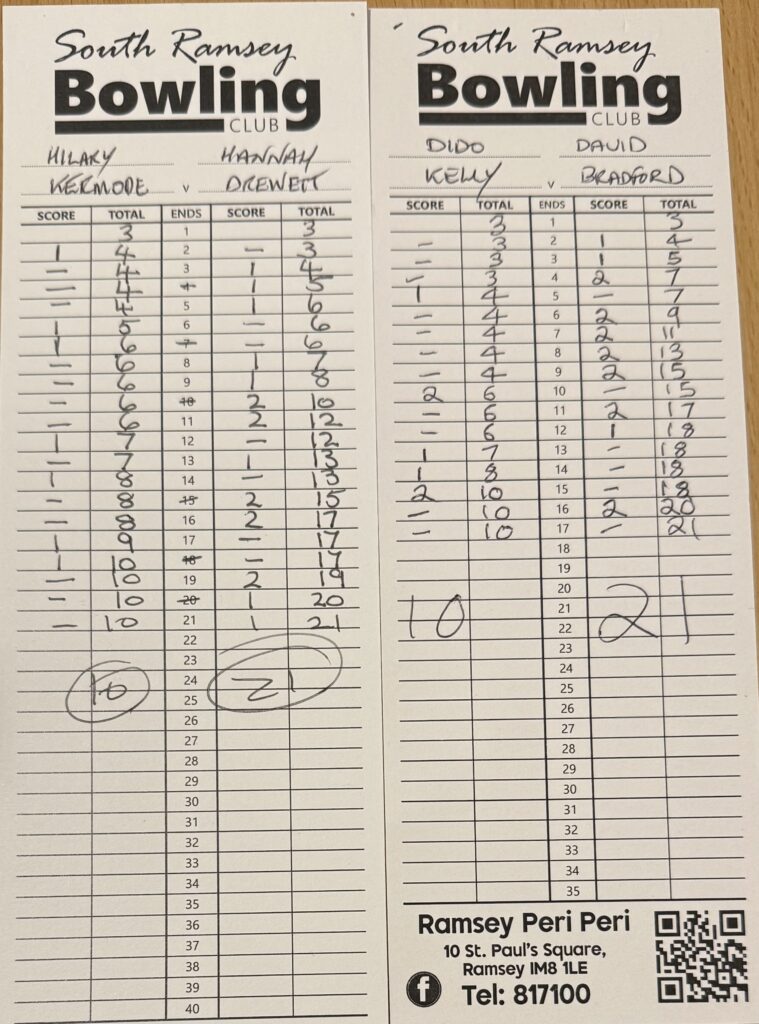 South Ramsey
Bowling
CLUB
HILARY HANNAH
KERMODE v DREWETT
SCORE TOTAL ENDS SCORE TOTAL
3 1 3
1 4 2 – 3
– 4 3 1 4
– 4 4 1 5
– 4 5 1 6
1 5 6 – 6
1 6 7 – 6
– 6 8 1 7
– 6 9 1 8
– 6 10 2 10
– 6 11 2 12
1 7 12 – 12
– 7 13 1 13
1 8 14 – 13
– 8 15 2 15
– 8 16 2 17
1 9 17 – 17
1 10 18 – 17
– 10 19 2 19
– 10 20 1 20
– 10 21 1 21
22
23
10 24 21
25
26
27
28
29
30
31
32
33
34
35
36
37
38
39
40
South Ramsey
Bowling
CLUB
DIDO DAVID
KELLY v BRADFORD
SCORE TOTAL ENDS SCORE TOTAL
3 1 3
– 3 2 1 4
– 3 3 1 5
– 3 4 2 7
1 4 5 – 7
– 4 6 2 9
– 4 7 2 11
– 4 8 2 13
– 4 9 2 15
2 6 10 – 15
– 6 11 2 17
– 6 12 1 18
1 7 13 – 18
1 8 14 – 18
2 10 15 – 18
– 10 16 2 20
– 10 17 – 21
18
19
20
10 21 21
22
23
24
25
26
27
28
29
30
31
32
33
34
35
Ramsey Peri Peri
10 St. Paul's Square,
Ramsey IM8 1LE
f Tel: 817100